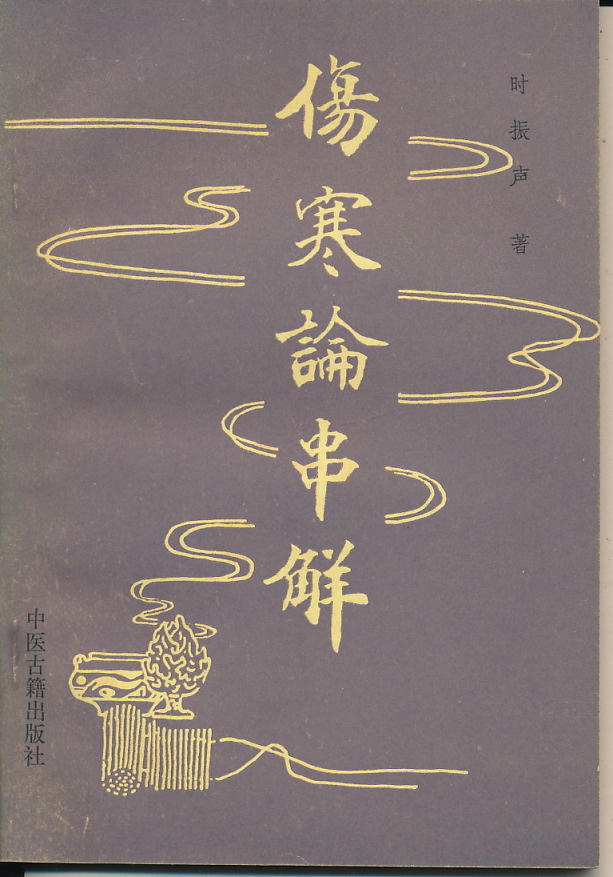 时振声 著
傷寒論串觧
中医古籍出版社